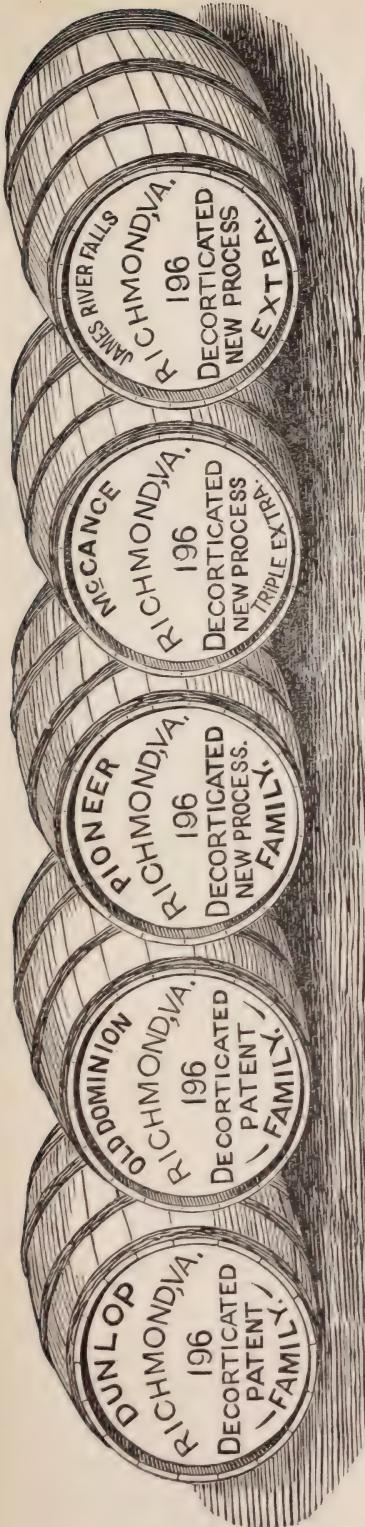 DUNLOP
RICHMOND, VA.
196
DECORTICATED
PATENT
FAMILY.
OLD DOMINION
RICHMOND, VA.
196
DECORTICATED
PATENT
FAMILY.
PIONEER
RICHMOND, VA.
196
DECORTICATED
NEW PROCESS.
FAMILY.
McCANCE
RICHMOND, VA.
196
DECORTICATED
NEW PROCESS
TRIPLE EXTRA.
JAMES RIVER FALLS
RICHMOND, VA.
196
DECORTICATED
NEW PROCESS
EXTRA.